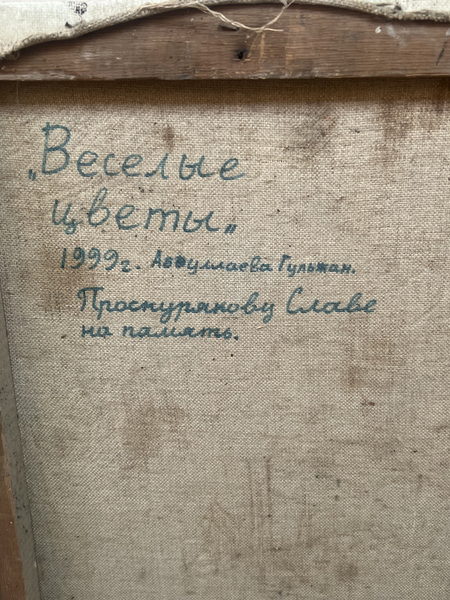 „Веселые
цветы„
1999г. Абдуллаева Гульжан.
Проскурякову Славе
на память.